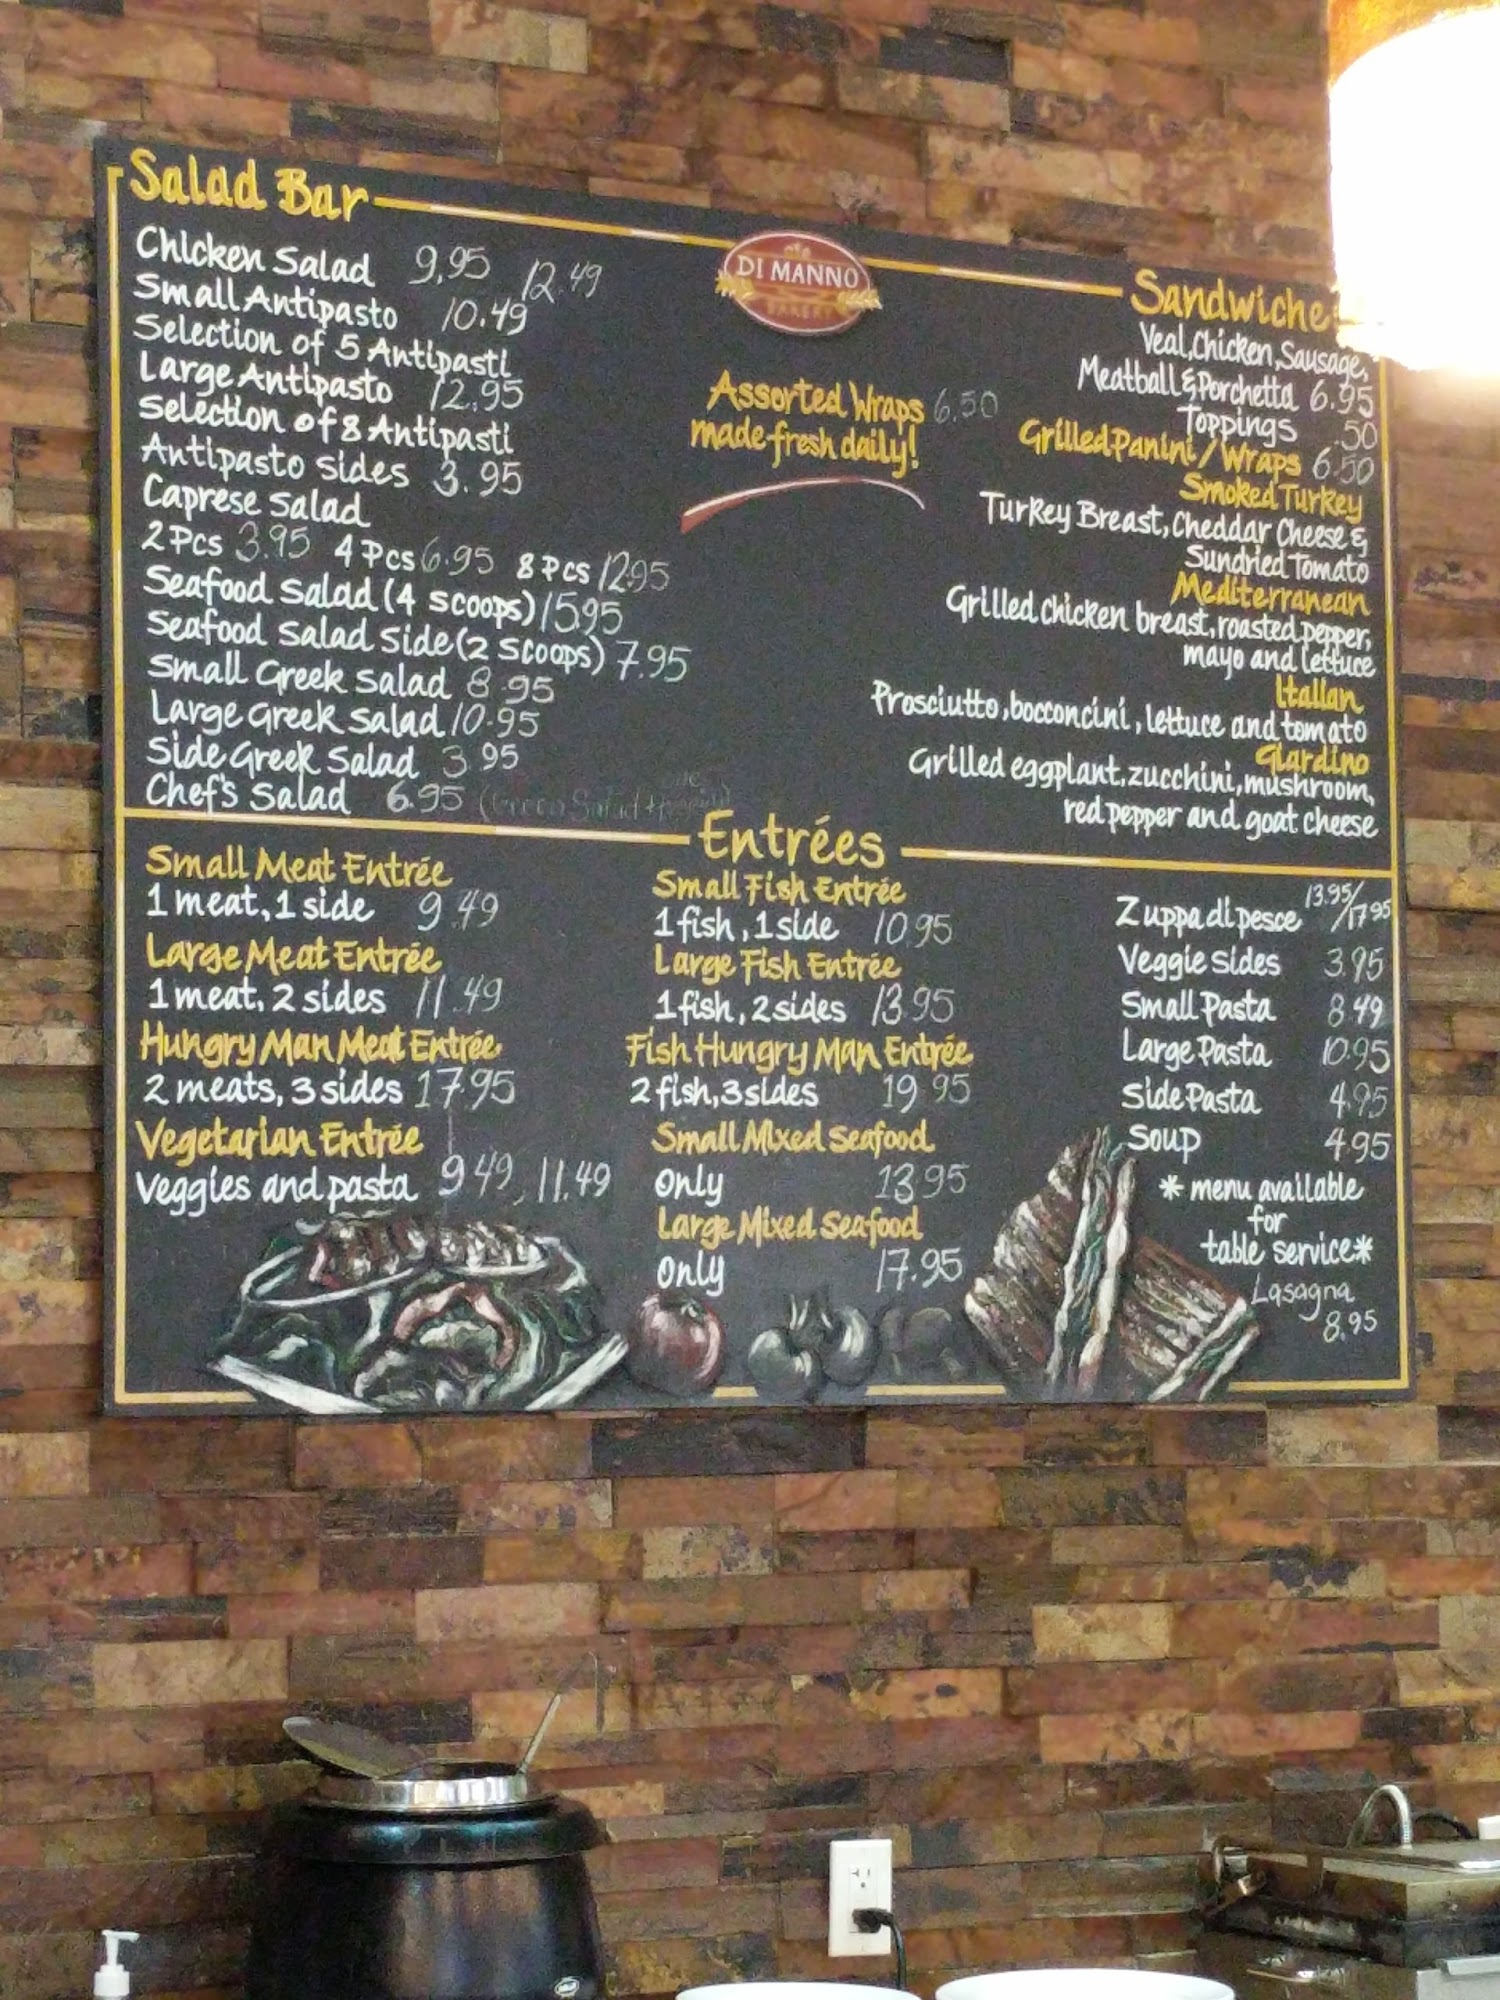 Salad Bar
Chicken Salad 9.95 12.49
Small Antipasto 10.49
Selection of 5 Antipasti
Large Antipasto 12.95
Selection of 8 Antipasti
Antipasto sides 3.95
Caprese Salad
2 Pcs 3.95 4 Pcs 6.95 8 Pcs 12.95
Seafood Salad (4 scoops) 15.95
Seafood Salad Side (2 scoops) 7.95
Small Greek Salad 8.95
Large Greek Salad 10.95
Side Greek Salad 3.95
Chef's Salad 6.95 (Green Salad
DI MANNO
BAKERY
Assorted Wraps 6.50
made fresh daily!
Sandwiche
Veal, Chicken, Sausage,
Meatball & Porchetta 6.95
Toppings .50
Grilled Panini / Wraps 6.50
Smoked Turkey
Turkey Breast, Cheddar Cheese &
Sundried Tomato
Mediterranean
Grilled chicken breast, roasted pepper,
mayo and lettuce
Italian
Prosciutto, bocconcini, lettuce and tomato
Giardino
Grilled eggplant, zucchini, mushroom,
red pepper and goat cheese
Entrées
Small Meat Entrée
1 meat, 1 side 9.49
Large Meat Entrée
1 meat, 2 sides 11.49
Hungry Man Meat Entrée
2 meats, 3 sides 17.95
Vegetarian Entrée
Veggies and pasta 9.49, 11.49
Small Fish Entrée
1 fish, 1 side 10.95
Large Fish Entrée
1 fish, 2 sides 13.95
Fish Hungry Man Entrée
2 fish, 3 sides 19.95
Small Mixed Seafood
Only 13.95
Large Mixed Seafood
Only 17.95
Zuppa di pesce 13.95/17.95
Veggie sides 3.95
Small Pasta 8.49
Large Pasta 10.95
Side Pasta 4.95
Soup 4.95
* menu available
for
table service*
Lasagna
8.95